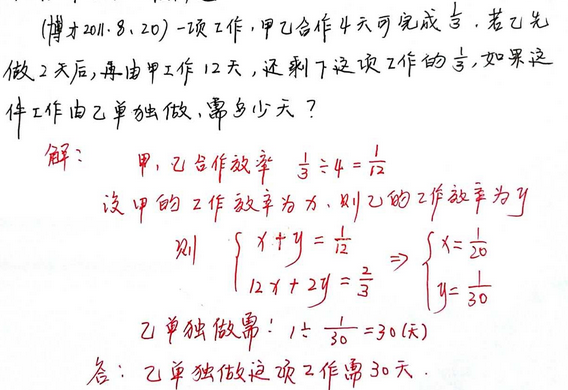 (博才2011.8、20)一项工作,甲乙合作4天可完成1/3.若乙先
做2天后,再由甲工作12天,还剩下这项工作的1/3,如果这
件工作由乙单独做,需多少天?
解: 甲、乙合作效率 1/3÷4=1/12
设甲的工作效率为x.则乙的工作效率为y
则 { x+y=1/12 12x+2y=2/3 ⇒ { x=1/20 y=1/30
乙单独做需: 1÷1/30=30(天)
答: 乙单独做这项工作需30天.